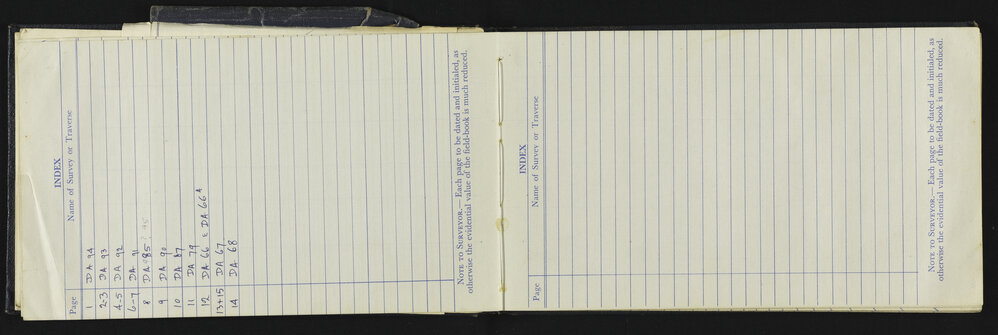 INDEX
Page Name of Survey or Traverse
1 DA 94
2-3 DA 93
4-5 DA 92
6-7 DA 91
8 DA 85? 95
9 DA 90
10 DA 87
11 DA 79
12 DA 66 & DA 66A
13+15 DA 67
14 DA 68
NOTE TO SURVEYOR.—Each page to be dated and initialed, as
otherwise the evidential value of the field-book is much reduced.
INDEX
Page Name of Survey or Traverse
NOTE TO SURVEYOR.—Each page to be dated and initialed, as
otherwise the evidential value of the field-book is much reduced.